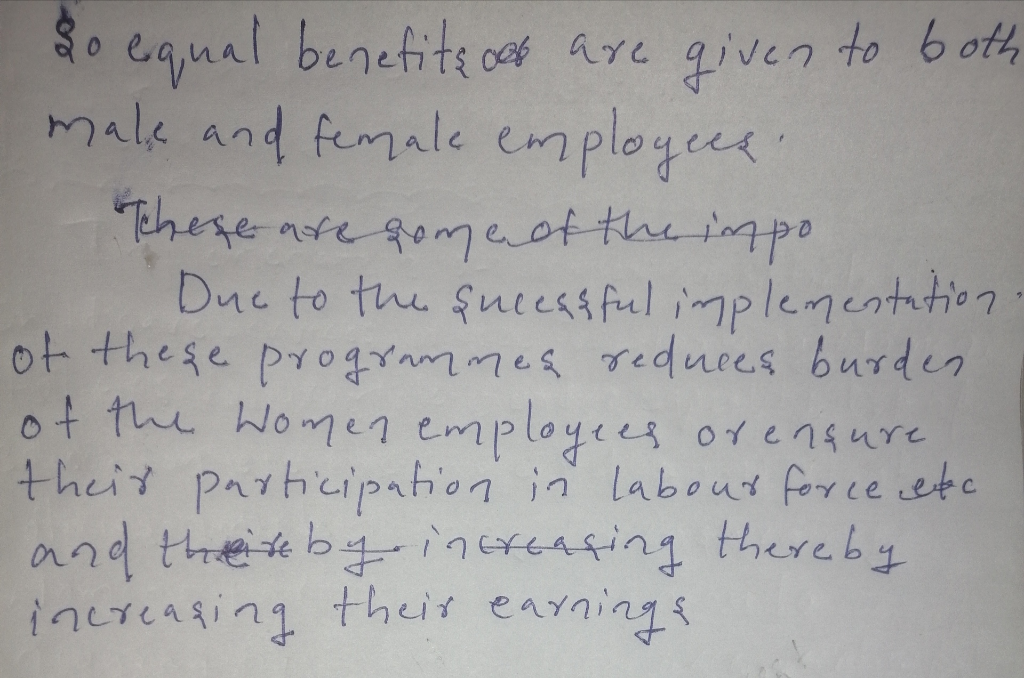 So equal benefits are given to both
male and female employees.
These are some of the impo
Due to the sucessful implementation
of these programmes reduces burden
of the Women employees or ensure
their participation in labour force etc
and thereby increasing thereby
increasing their earnings